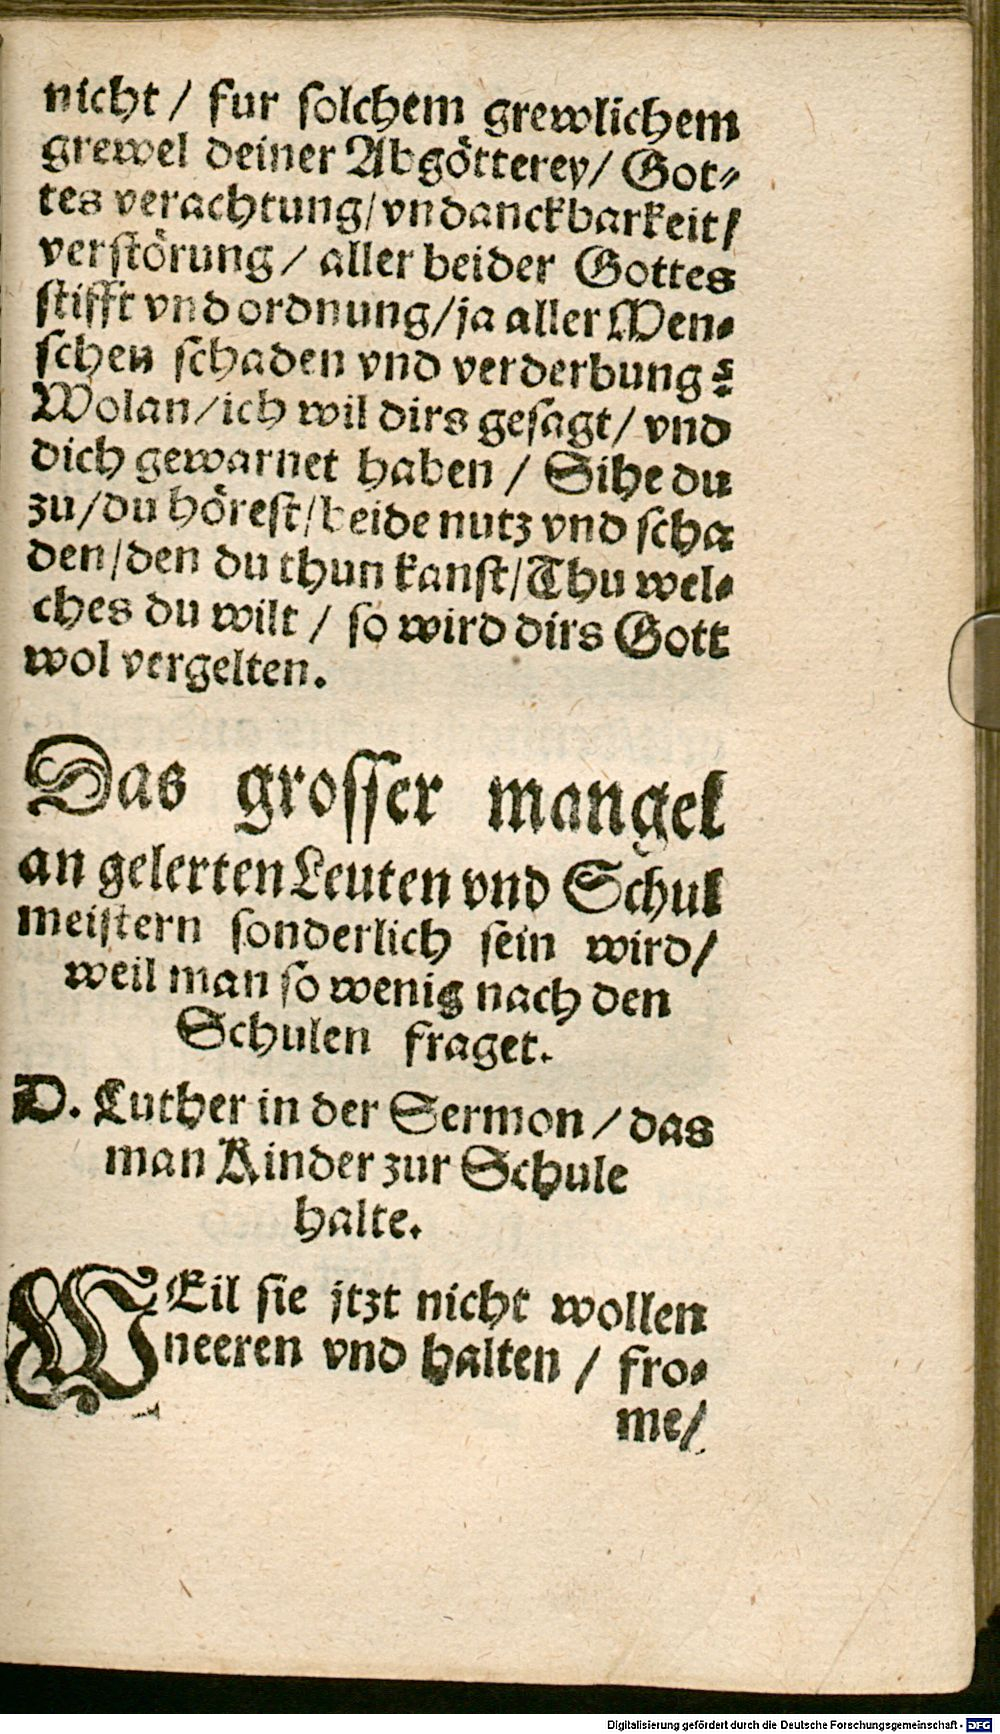 nicht / fur solchem grewlichem
grewel deiner Abgötterey / Got⸗
tes verachtung / vndanckbarkeit /
verstörung / aller beider Gottes
stifft vnd ordnung / ja aller Men⸗
schen schaden vnd verderbung?
Wolan / ich wil dirs gesagt / vnd
dich gewarnet haben / Sihe du
zu / du hörest / beide nutz vnd scha
den / den du thun kanst / Thu wel⸗
ches du wilt / so wird dirs Gott
wol vergelten.
Das grosser mangel
an gelerten Leuten vnd Schul
meistern sonderlich sein wird /
weil man so wenig nach den
Schulen fraget.
D. Luther in der Sermon / das
man Kinder zur Schule
halte.
WEil sie jtzt nicht wollen
neeren vnd halten / fro⸗
me /
Digitalisierung gefördert durch die Deutsche Forschungsgemeinschaft - DFG